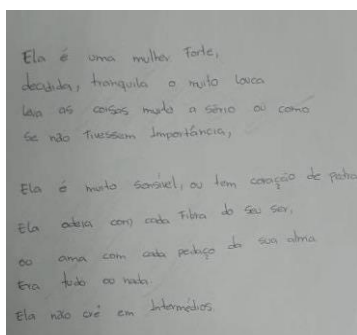 Ela é uma mulher Forte,
decidida, tranquila o muito louca
leva as coisas muito a sério ou como
se não tivessem Importância,
Ela é muito sensível, ou tem coração de pedra
Ela odeia com cada Fibra do seu ser,
ou ama com cada pedaço da sua alma
Era tudo ou nada.
Ela não crê em Intermédios.